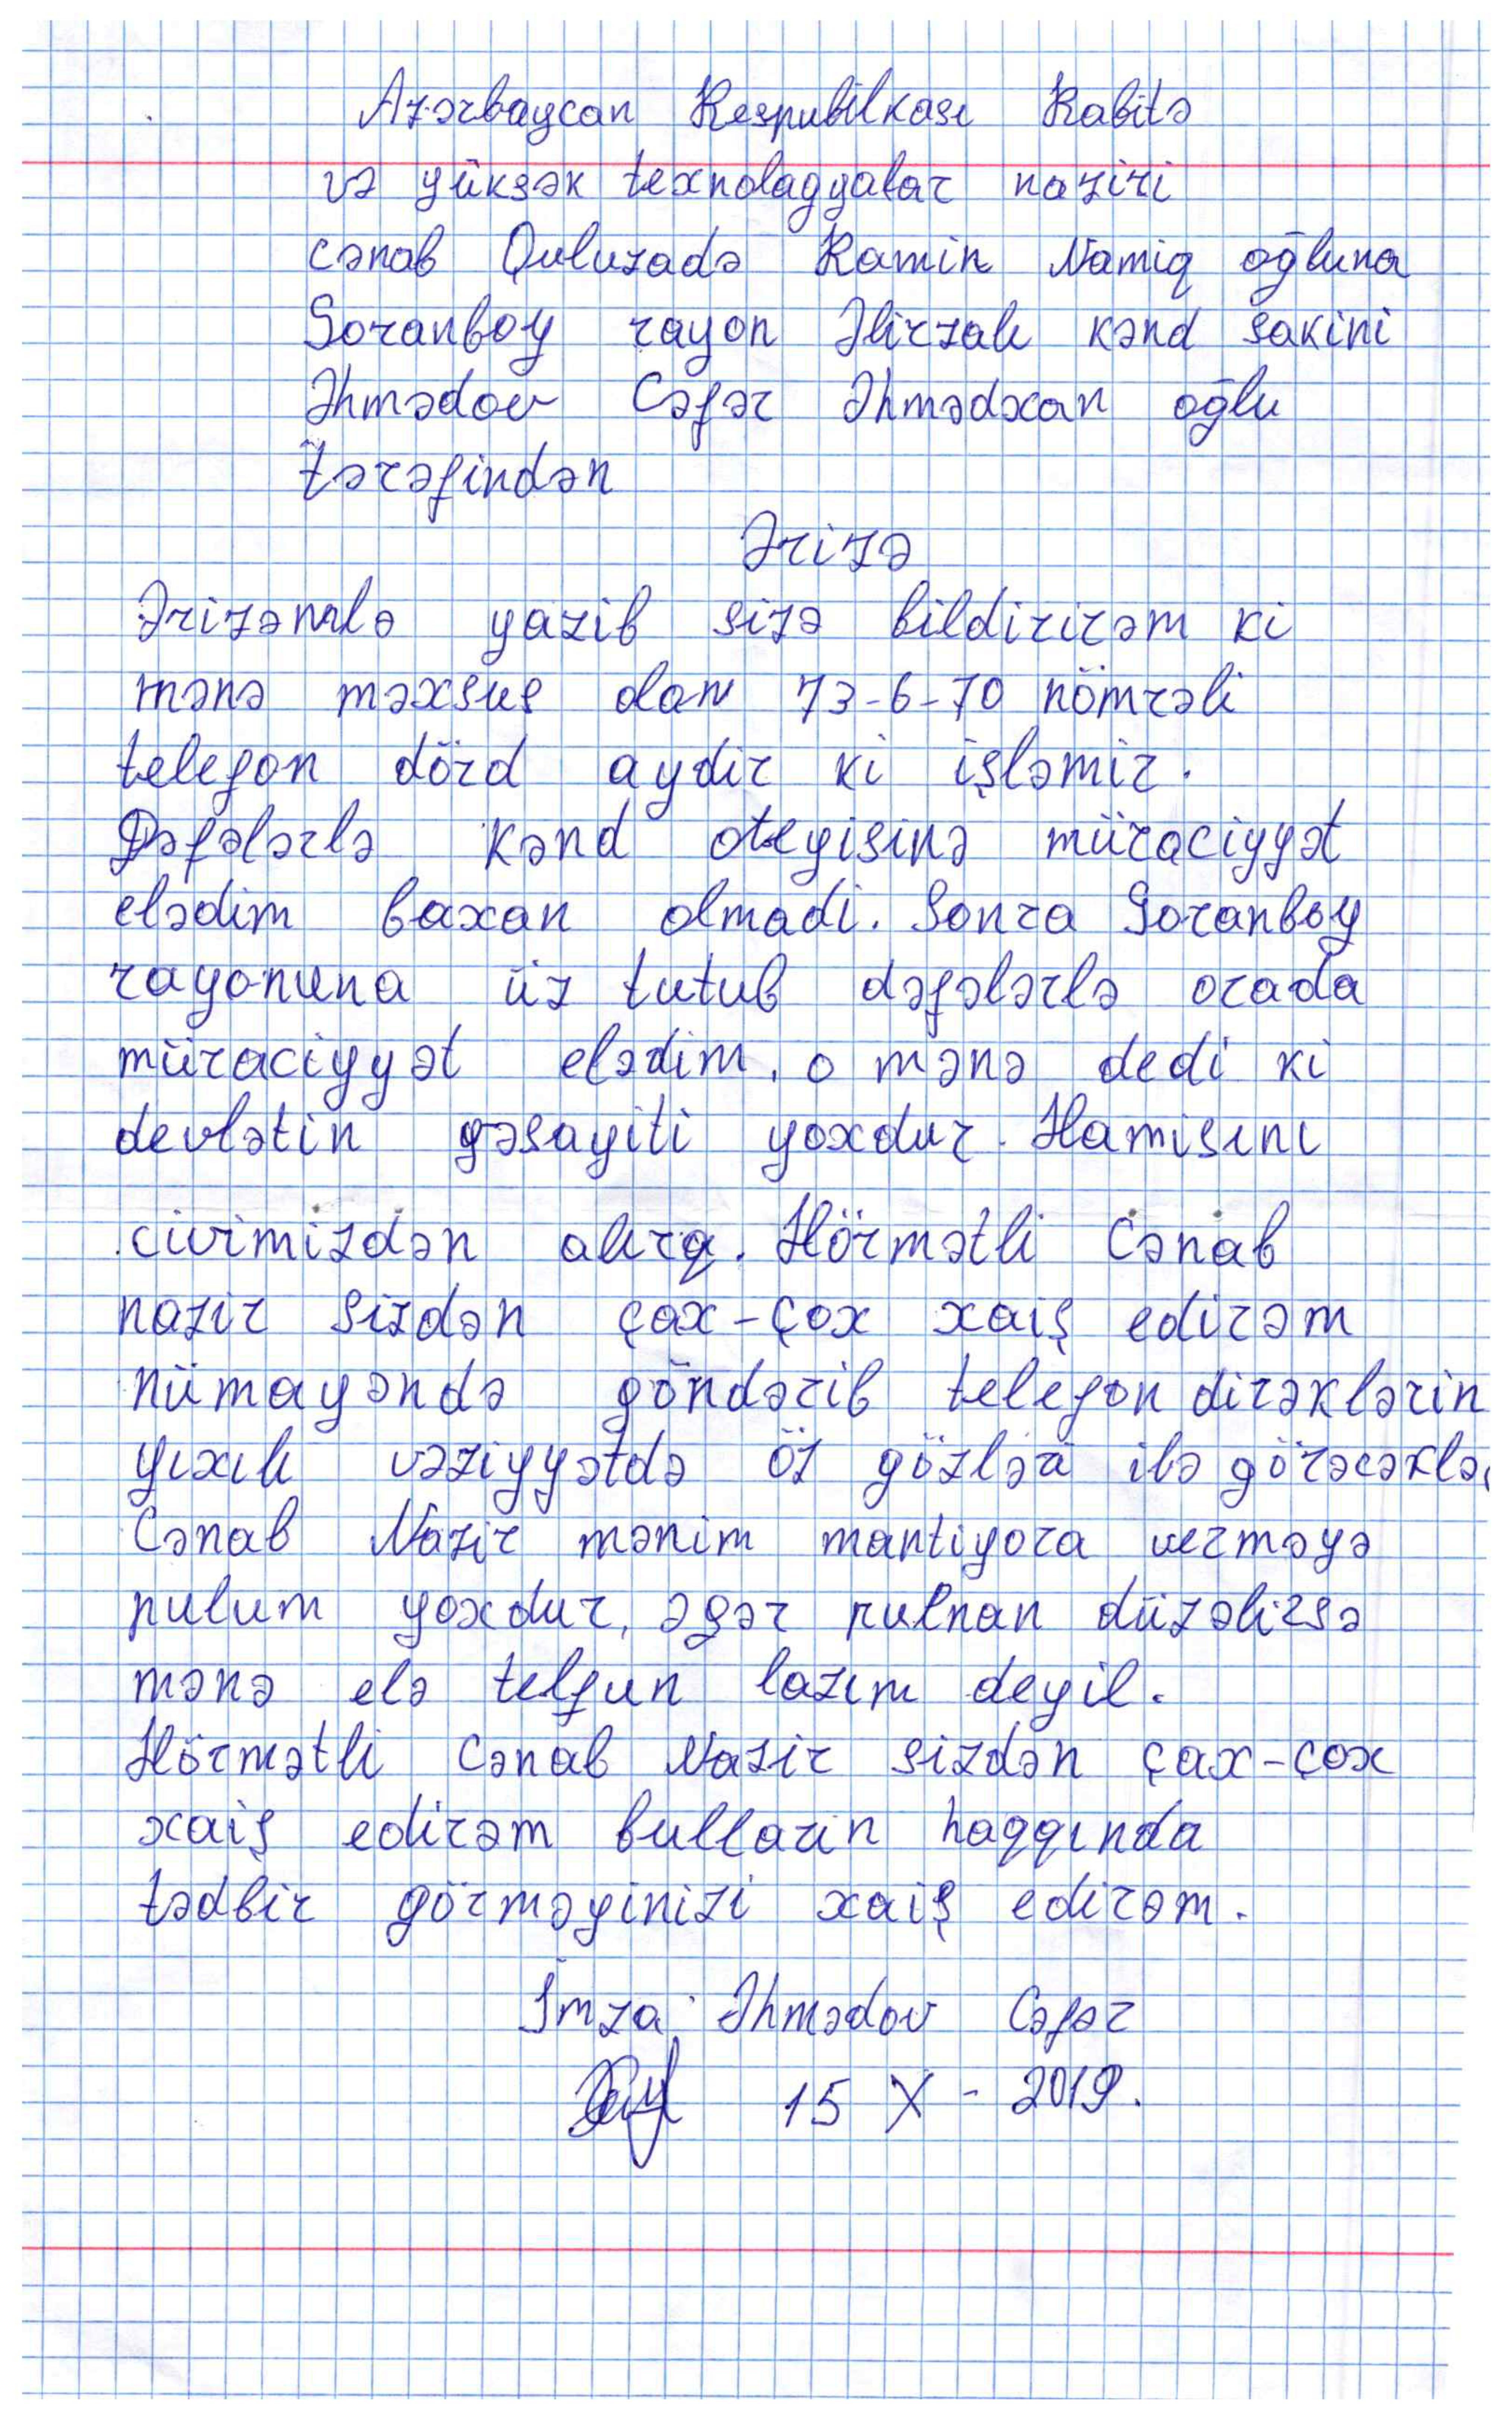 Azərbaycan Respubilkası Rabitə
və yüksək texnolagyalar naziri
cənab Quluzadə Ramin Namiq oğluna
Goranboy rayon Əlirzalı kənd sakini
Əhmədov Cəfər Əhmədxan oğlu
tərəfindən
Ərizə
Ərizəmlə yazib sizə bildirirəm ki
mənə məxsus olan 73-6-70 nömrəli
telefon dörd aydir ki işləmir.
Dəfələrlə kənd ateyisinə müraciyyət
elədim baxan olmadi. Sonra Goranboy
rayonuna üz tutub dəfələrlə orada
müraciyyət elədim. o mənə dedi ki
devlətin qəsayiti yoxdur. Hamisını
civimizdən alırq. Hörmətli Cənab
nazir sizdən çox-çox xaiş edirəm
nümayəndə göndərib telefon dirəklərin
yıxılı vəziyyətdə öz gözləri ilə görəcəklə
Cənab Nazir mənim mantiyora verməyə
pulum yoxdur, əgər pulnan düzəlirsə
mənə elə telfun lazım deyil.
Hörmətli Cənab Nazir sizdən çox-çox
xaiş edirəm bulların haqqında
tədbir görməyinizi xaiş edirəm.
İmza Əhmədov Cəfər
15 X - 2019.